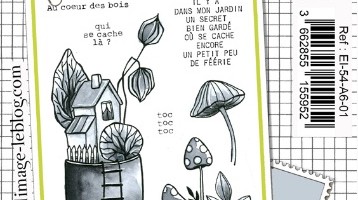 Au coeur des bois
qui
se cache
là ?
IL Y A
DANS MON JARDIN
UN SECRET
BIEN GARDÉ
OÙ SE CACHE
ENCORE
UN PETIT PEU
DE FÉÉRIE
toc
toc
toc
image-leblog.com
Réf : EI-54-A6-01
3 662855 155952